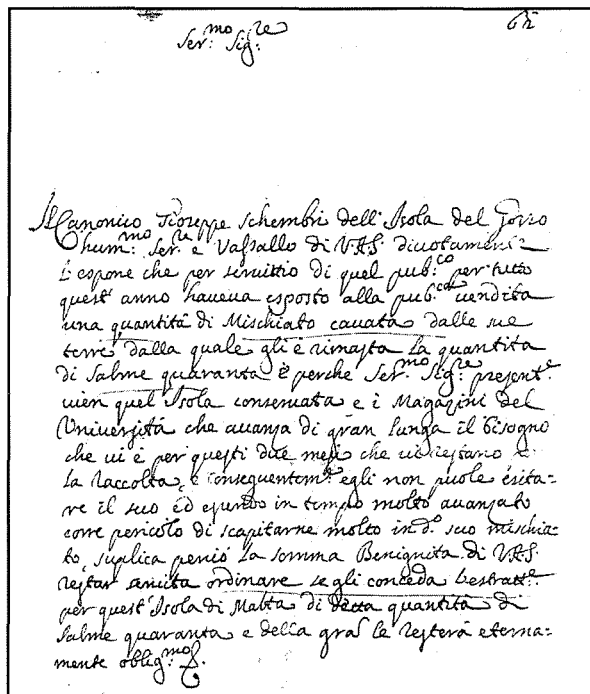 Ser:mo Sig:re
Il Canonico Gioseppe Schembri dell'Isola del Gozzo
hum:mo Ser:re e Vassallo di V.A.S. divotamente
l'espone che per servittio di quel pub:co per tutto
quest'anno haveva esposto alla pub:ca vendita
una quantità di Mischiato cavata dalle sue
terre dalla quale gli è rimasta la quantita
di salme quaranta e perche Ser:mo Sig:re present:e
vien quel Isola conservata e i Magazini del
Università che avanza di gran lunga il bisogno
che vi è per questi due mesi che vi restano
la raccolta, e conseguentem:e egli non puole esita-
re il suo ed essendo in tempo molto avanzato
corre pericolo di scapitarne molto in d:o suo mischia-
to, suplica perciò la somma Benignita di V.A.S.
restar servita ordinare se gli conceda l'estratt:e
per quest'Isola di Malta di detta quantità di
salme quaranta e della gra' le restera eterna-
mente oblig:mo